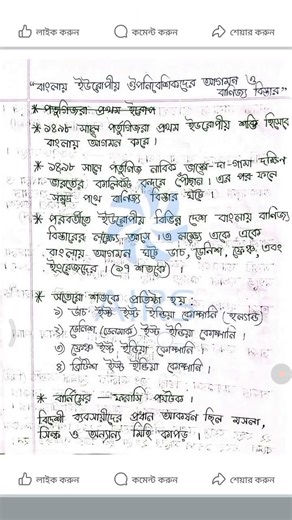 লাইক করুন কমেন্ট করুন শেয়ার করুন
"বাংলায় ইউরোপীয় ঔপনিবেশিকদের আগমন ও
বাণিজ্য বিস্তার"
* পর্তুগিজরা প্রথম
* ১৪৯৮ সালে পর্তুগিজরা প্রথম ইউরোপীয় শক্তি হিসেবে
বাংলায় আগমন করে।
* ১৪৯৮ সালে পর্তুগিজ নাবিক ভাস্কো-দা-গামা দক্ষিণ
ভারতের কালিকট বন্দরে পৌছান। এর পর ফলে
সমুদ্র পথে বাণিজ্য বিস্তার ঘটে।
* পরবর্তীতে ইউরোপীয় বিভিন্ন দেশ বাংলায় বাণিজ্য
বিস্তারের লক্ষ্যে আসে। এ লক্ষ্যে একে একে
বাংলায় আগমন ঘটে ডাচ, ডেনিশ, ফ্রেঞ্চ, এবং
ইংরেজদের। (১৭ শতকে)।
* সতেরো শতকে প্রতিষ্ঠা হয়:
১) ডাচ ইস্ট ইন্ডিয়া কোম্পানি (হল্যান্ড)
২) ডেনিশ (ডেনমার্ক) ইস্ট ইন্ডিয়া কোম্পানি
৩) ফ্রেঞ্চ ইস্ট ইন্ডিয়া কোম্পানি।
৪) ব্রিটিশ ইস্ট ইন্ডিয়া কোম্পানি।
* বার্নিয়ের — ফরাসি পর্যটক।
বিদেশী ব্যবসায়ীদের প্রধান আকর্ষন ছিল মসলা,
সিল্ক ও অন্যান্য মিহি কাপড়।
লাইক করুন কমেন্ট করুন শেয়ার করুন